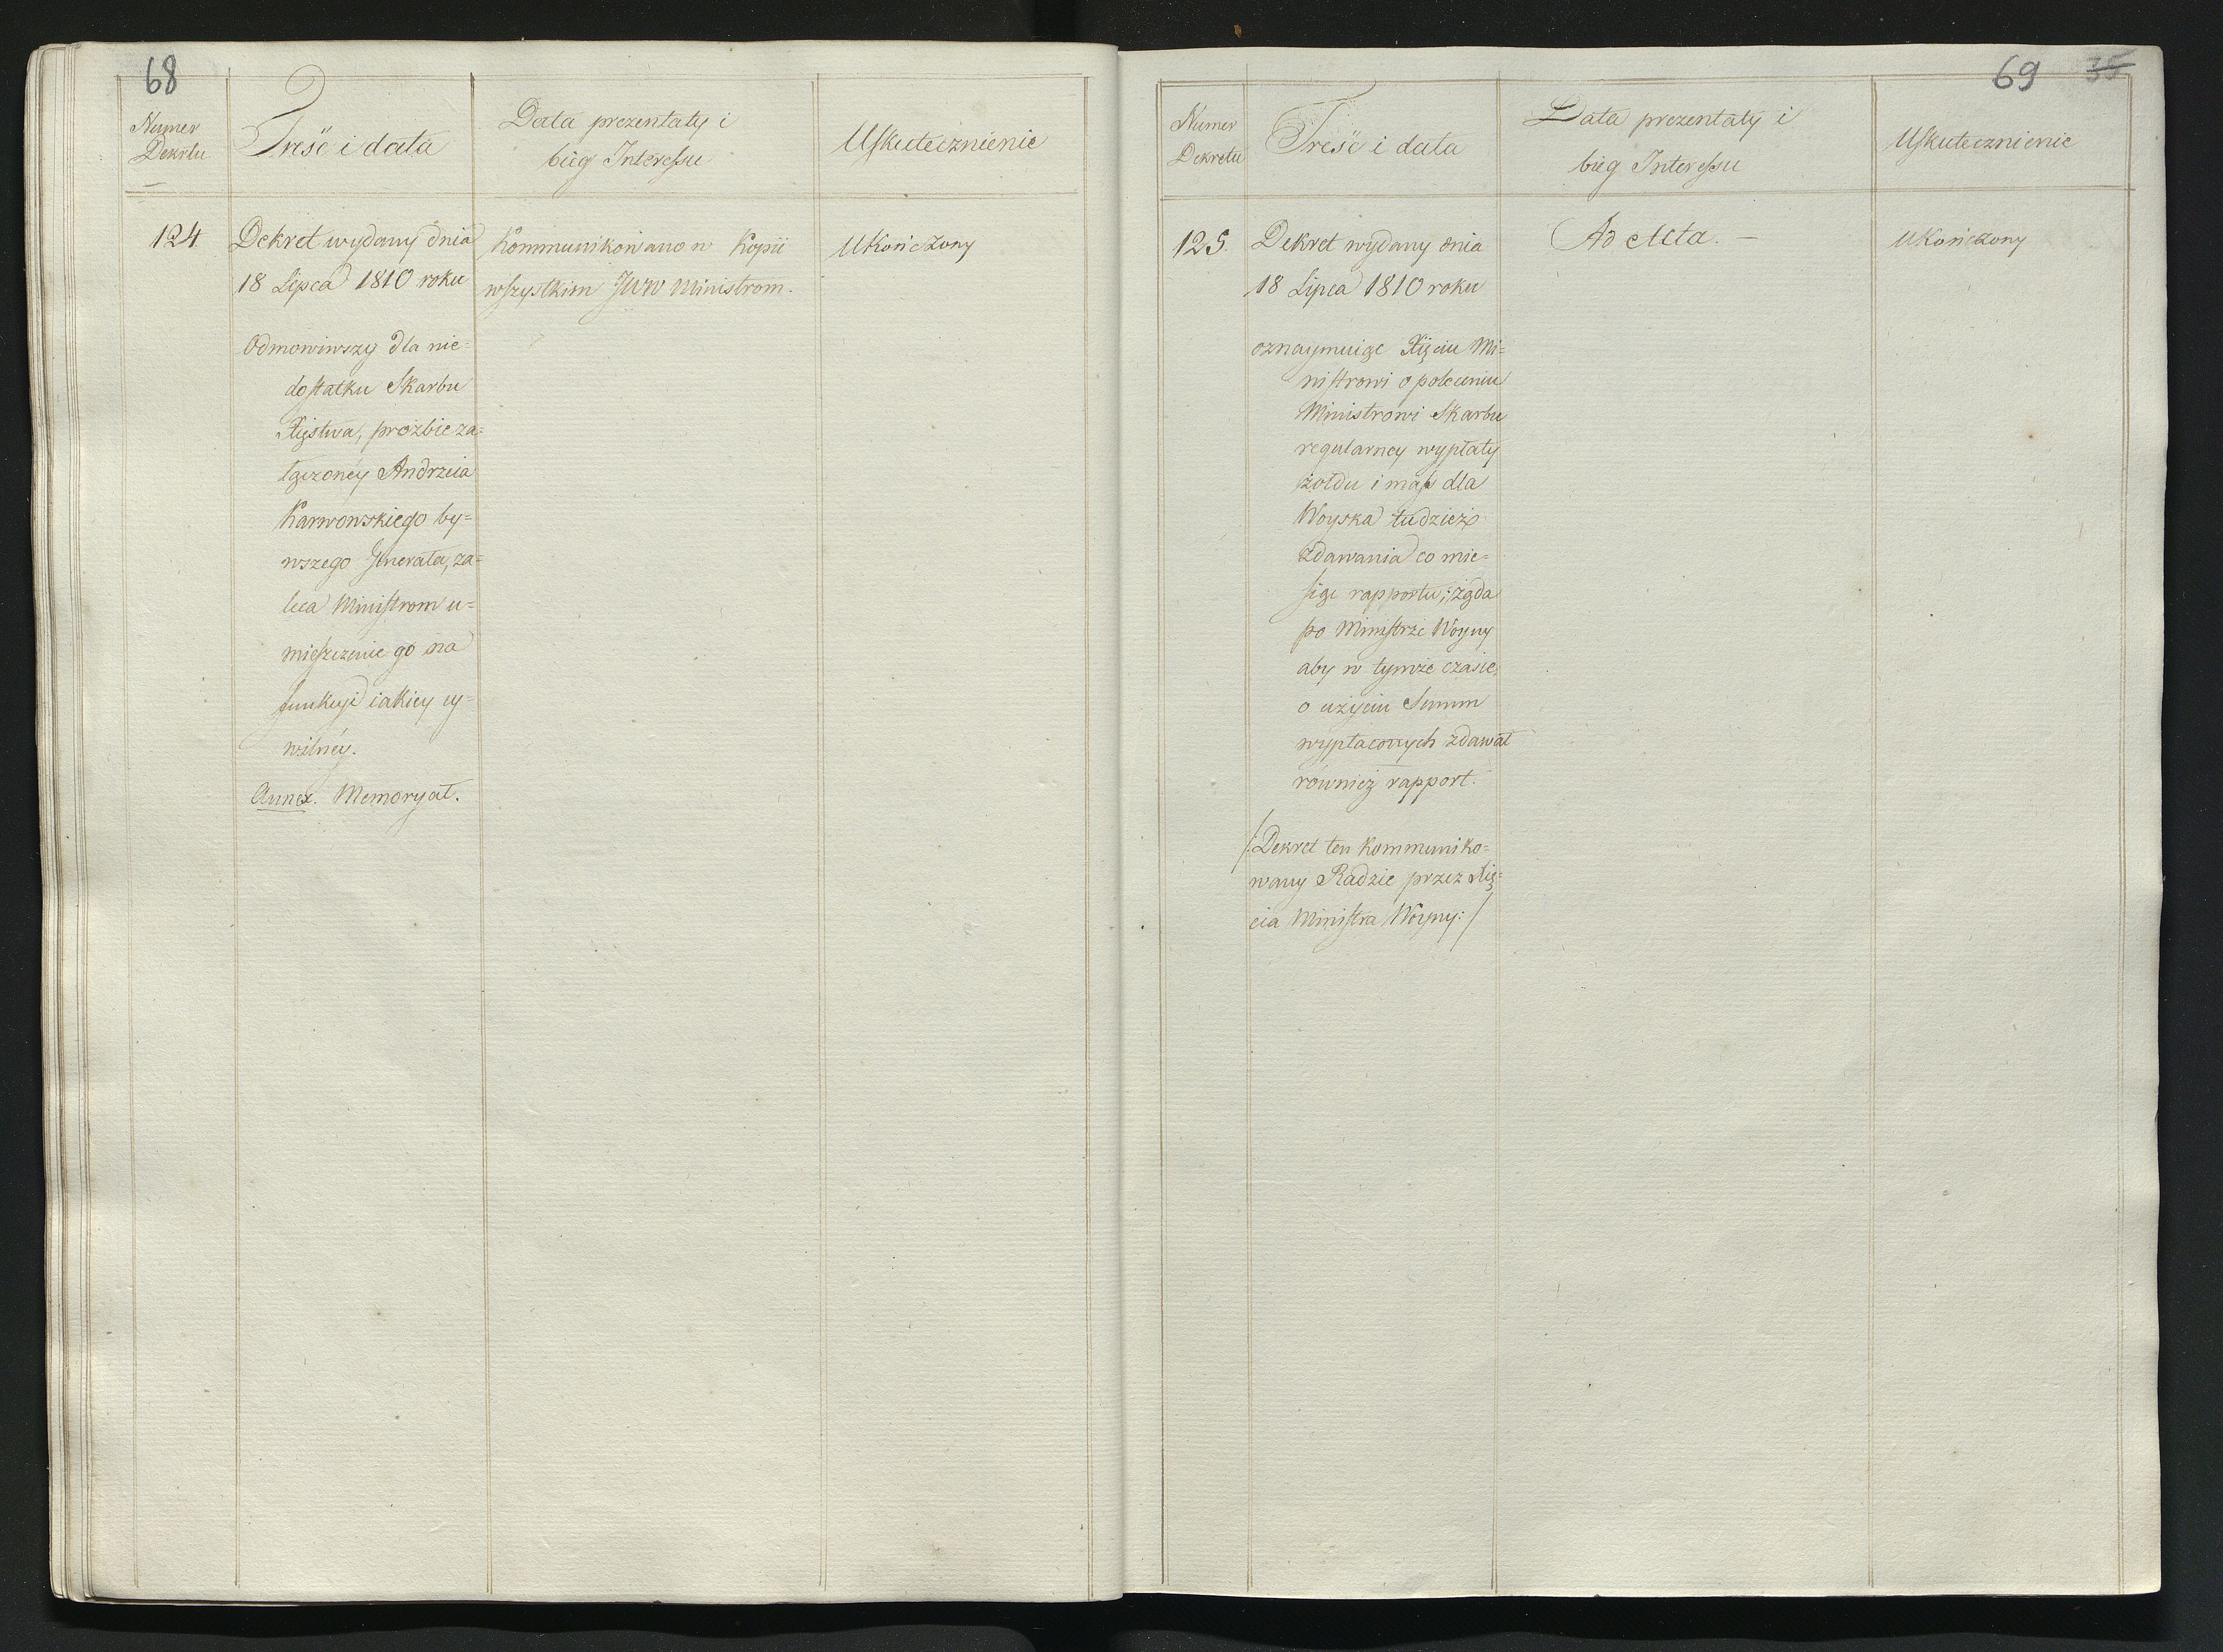 68
Numer
Dekrtu
Treść i data
Data prezentaty i
bieg Interessu
Uskutecznienie
124.
Dekret wydany dnia
18 Lipca 1810 roku
Odmowiwszy dla nie=
dostatku Skarbu
Xięstwa, proźbie za=
łączoney Andrzeia
Karwowskiego by=
wszego Jenerała, za=
leca Ministrom u=
mieszczenie go na
funkcyi iakiey cy=
wilnéy.
Annex. Memoryał.
Kommunikowano w Kopii
wszystkim JWW Ministrom.
Ukończony
69 35
Numer
Dekretu
Treść i data
Data prezentaty i
bieg Interessu
Uskutecznienie
125.
Dekret wydany dnia
18 Lipca 1810 roku
oznaymuiąc Xięciu Mi=
nistrowi o poleceniu
Ministrowi Skarbu
regularney wypłaty
żołdu i mass dla
Woyska tudzież
zdawania co mie=
siąc rapportu; żąda
po Ministrze Woyny
aby w tymże czasie
o użyciu Summ
wypłaconych zdawał
również rapport.
/:Dekret ten kommuniko=
wany Radzie przez Xię=
cia Ministra Woyny:/
Ad Acta. —
Ukończony